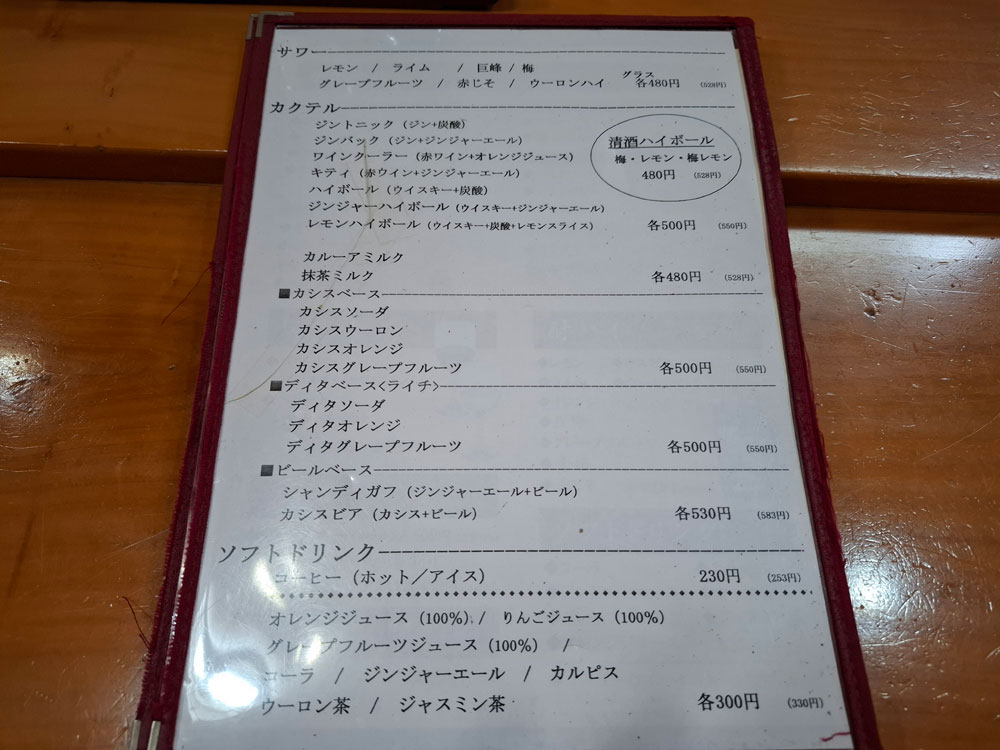 サワー
レモン / ライム / 巨峰 / 梅
グレープフルーツ / 赤じそ / ウーロンハイ グラス 各480円 (528円)
カクテル
ジントニック (ジン+炭酸)
ジンバック (ジン+ジンジャーエール)
ワインクーラー (赤ワイン+オレンジジュース)
キティ (赤ワイン+ジンジャーエール)
ハイボール (ウイスキー+炭酸)
ジンジャーハイボール (ウイスキー+ジンジャーエール)
レモンハイボール (ウイスキー+炭酸+レモンスライス) 各500円 (550円)
清酒ハイボール
梅・レモン・梅レモン
480円 (528円)
カルーアミルク
抹茶ミルク 各480円 (528円)
■カシスベース
カシスソーダ
カシスウーロン
カシスオレンジ
カシスグレープフルーツ 各500円 (550円)
■ディタベース<ライチ>
ディタソーダ
ディタオレンジ
ディタグレープフルーツ 各500円 (550円)
■ビールベース
シャンディガフ (ジンジャーエール+ビール)
カシスビア (カシス+ビール) 各530円 (583円)
ソフトドリンク
コーヒー (ホット／アイス) 230円 (253円)
オレンジジュース (100%) / りんごジュース (100%)
グレープフルーツジュース (100%) /
コーラ / ジンジャーエール / カルピス
ウーロン茶 / ジャスミン茶 各300円 (330円)